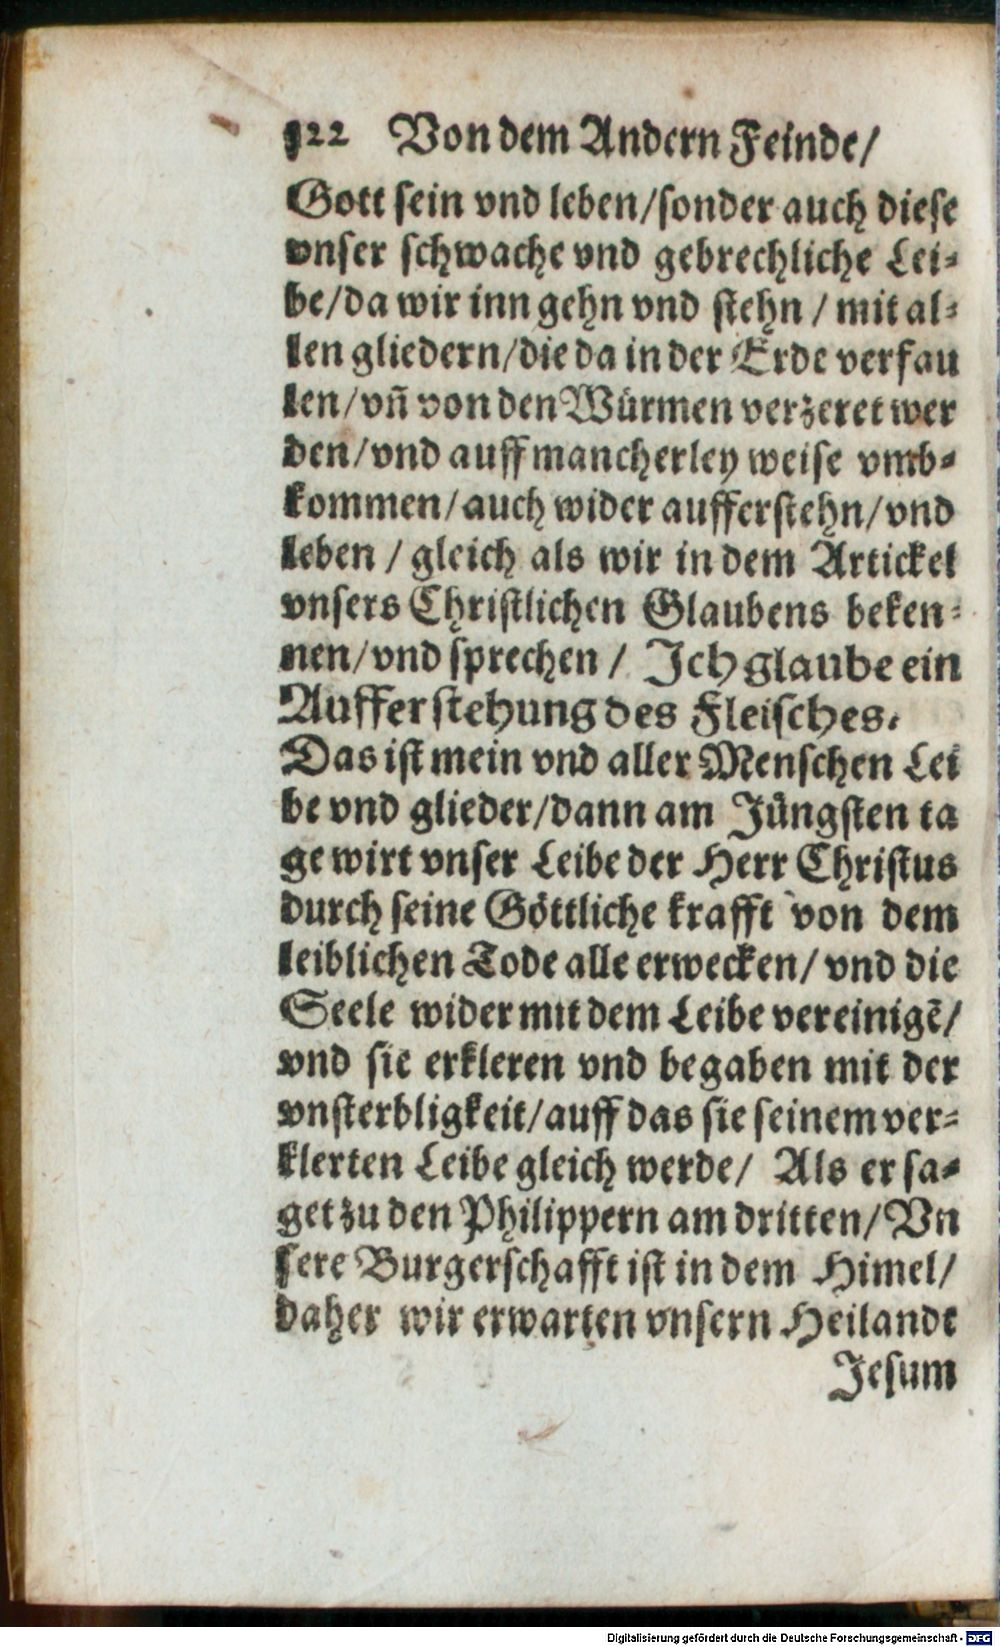 122 Von dem Andern Feinde/
Gott sein vnd leben/sonder auch diese
vnser schwache vnd gebrechliche Lei-
be/da wir inn gehn vnd stehn / mit al-
len gliedern/die da in der Erde verfau
len/vn̄ von den Würmen verzeret wer
den/vnd auff mancherley weise vmb-
kommen/auch wider aufferstehn/vnd
leben / gleich als wir in dem Artickel
vnsers Christlichen Glaubens beken-
nen/vnd sprechen / Ich glaube ein
Aufferstehung des Fleisches.
Das ist mein vnd aller Menschen Lei
be vnd glieder/dann am Jüngsten ta
ge wirt vnser Leibe der Herr Christus
durch seine Göttliche krafft von dem
leiblichen Tode alle erwecken/ vnd die
Seele wider mit dem Leibe vereinigē/
vnd sie erkleren vnd begaben mit der
vnsterbligkeit/auff das sie seinem ver-
klerten Leibe gleich werde/ Als er sa-
get zu den Philippern am dritten/Vn
sere Burgerschafft ist in dem Himel/
daher wir erwarten vnsern Heilandt
Jesum
Digitalisierung gefördert durch die Deutsche Forschungsgemeinschaft - DFG